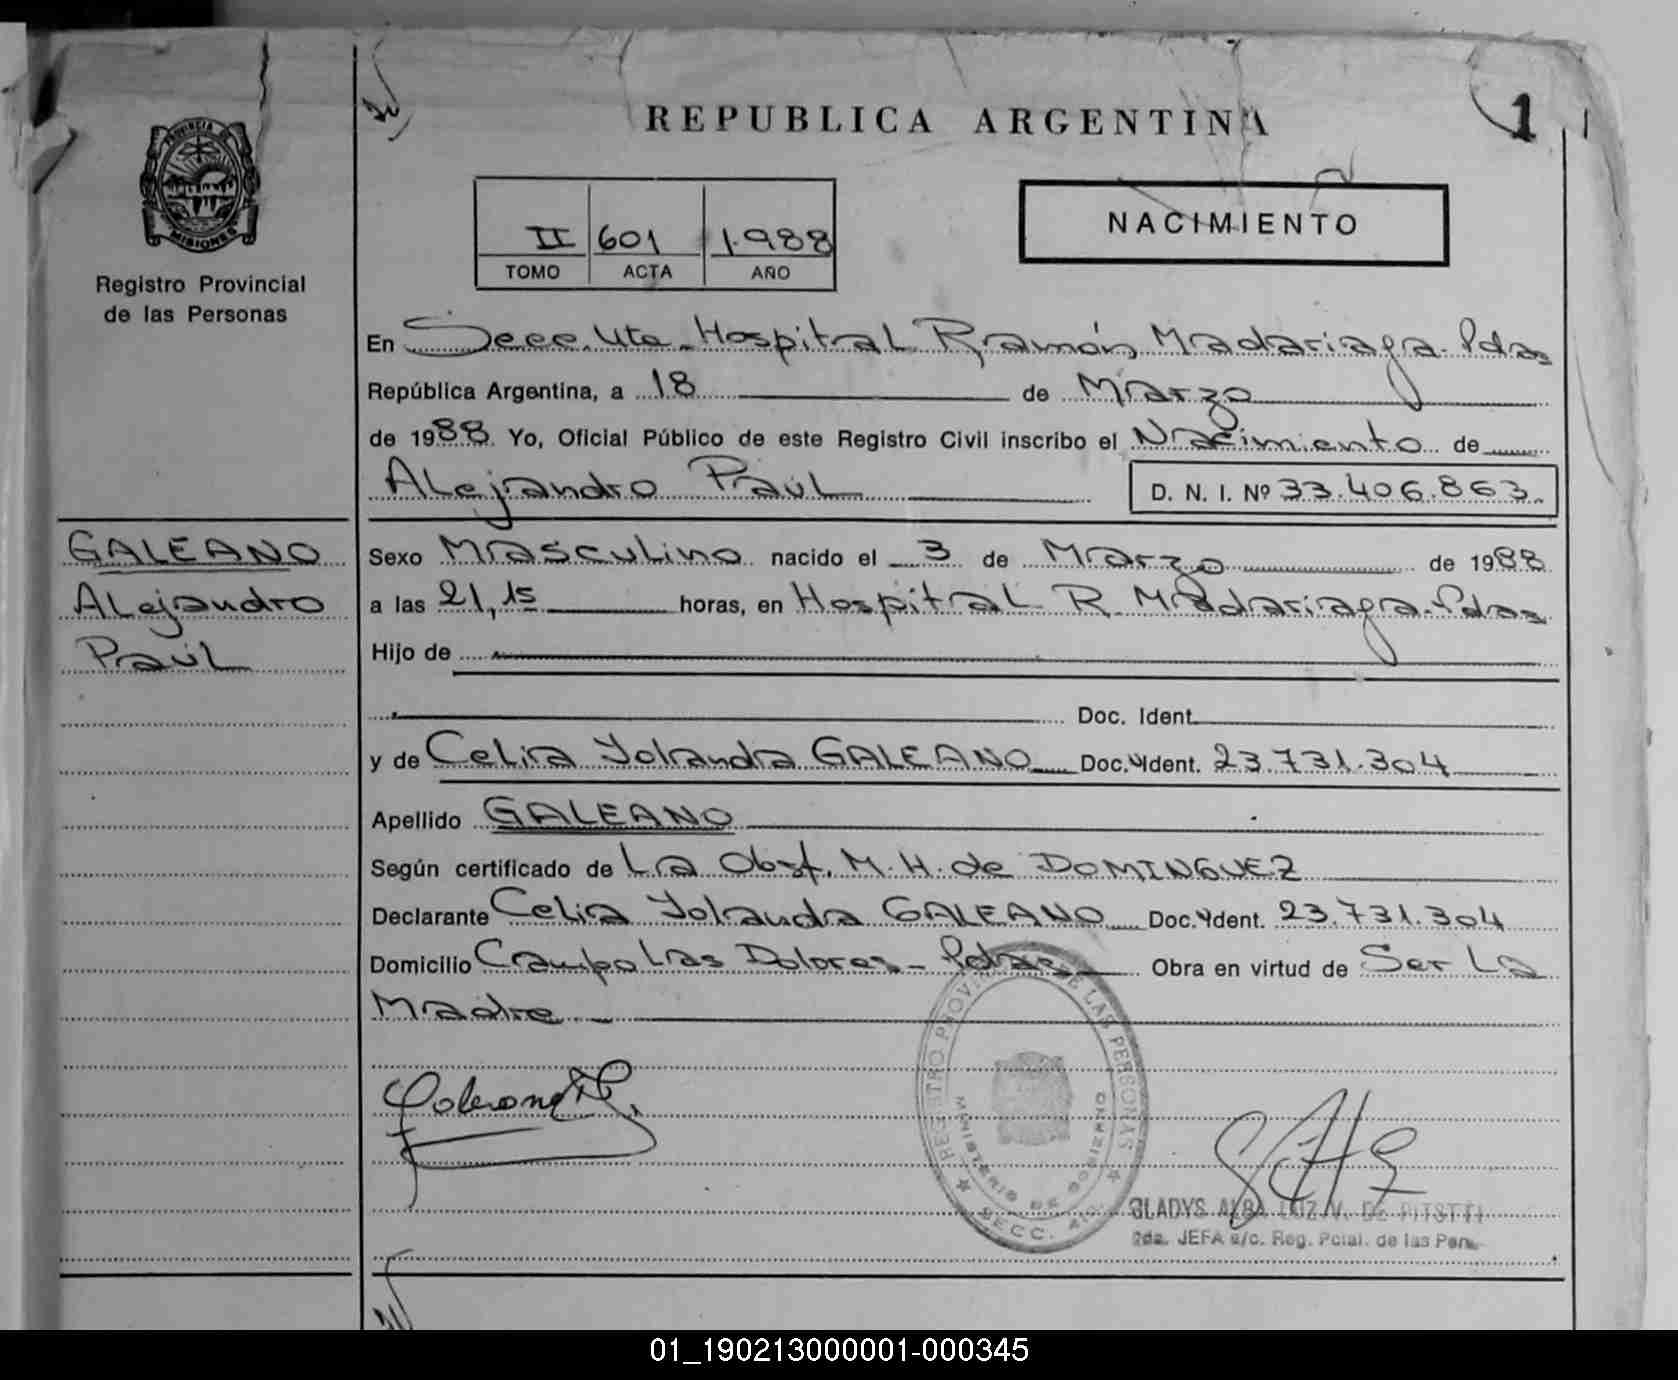 REPUBLICA ARGENTINA
1
PROVINCIA DE
MISIONES
Registro Provincial
de las Personas
II 601 1.988
TOMO ACTA AÑO
NACIMIENTO
En Secc. 4ta - Hospital Ramón Madariaga - Pdas
República Argentina, a 18 de Marzo
de 1988. Yo, Oficial Público de este Registro Civil inscribo el Nacimiento de
Alejandro Paúl D. N. I. Nº 33.406.863.
GALEANO
Alejandro
Paúl
Sexo Masculino nacido el 3 de Marzo de 1988
a las 21,15 horas, en Hospital R. Madariaga - Pdas
Hijo de
Doc. Ident.
y de Celia Yolanda GALEANO Doc. Ident. 23.731.304
Apellido GALEANO
Según certificado de La Obst. M. H. de DOMINGUEZ
Declarante Celia Yolanda GALEANO Doc. Ident. 23.731.304
Domicilio Campo Las Dolores - Pdas Obra en virtud de Ser La
Madre
REGISTRO PROVINCIAL DE LAS PERSONAS
MINISTERIO DE GOBIERNO
SECC. 4ta
GLADYS ALBA LUZ V. DE
2da. JEFA a/c. Reg. Pcial. de las Pers.
01_190213000001-000345